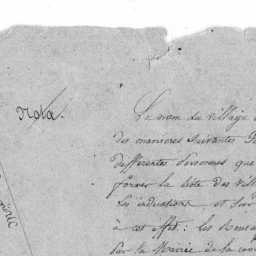 Nota.
Le nom du village
des manieres suivantes
differentes personnes que
former la liste des vill
les indications et sur
à cet effet : les
sur la Mairie de la com